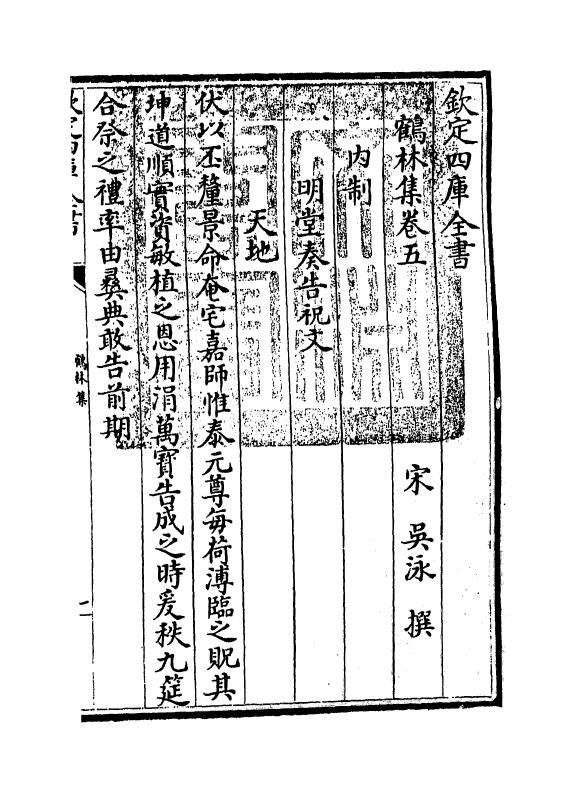 欽定四庫全書
鶴林集卷五
宋 吳泳 撰
内制
明堂奏告祝文
天地
伏以丕釐景命奄宅嘉師惟泰元尊每荷溥臨之貺其
坤道順實資敏植之恩用涓萬寶告成之時爰秩九筵
合祭之禮率由彞典敢告前期
鶴林集